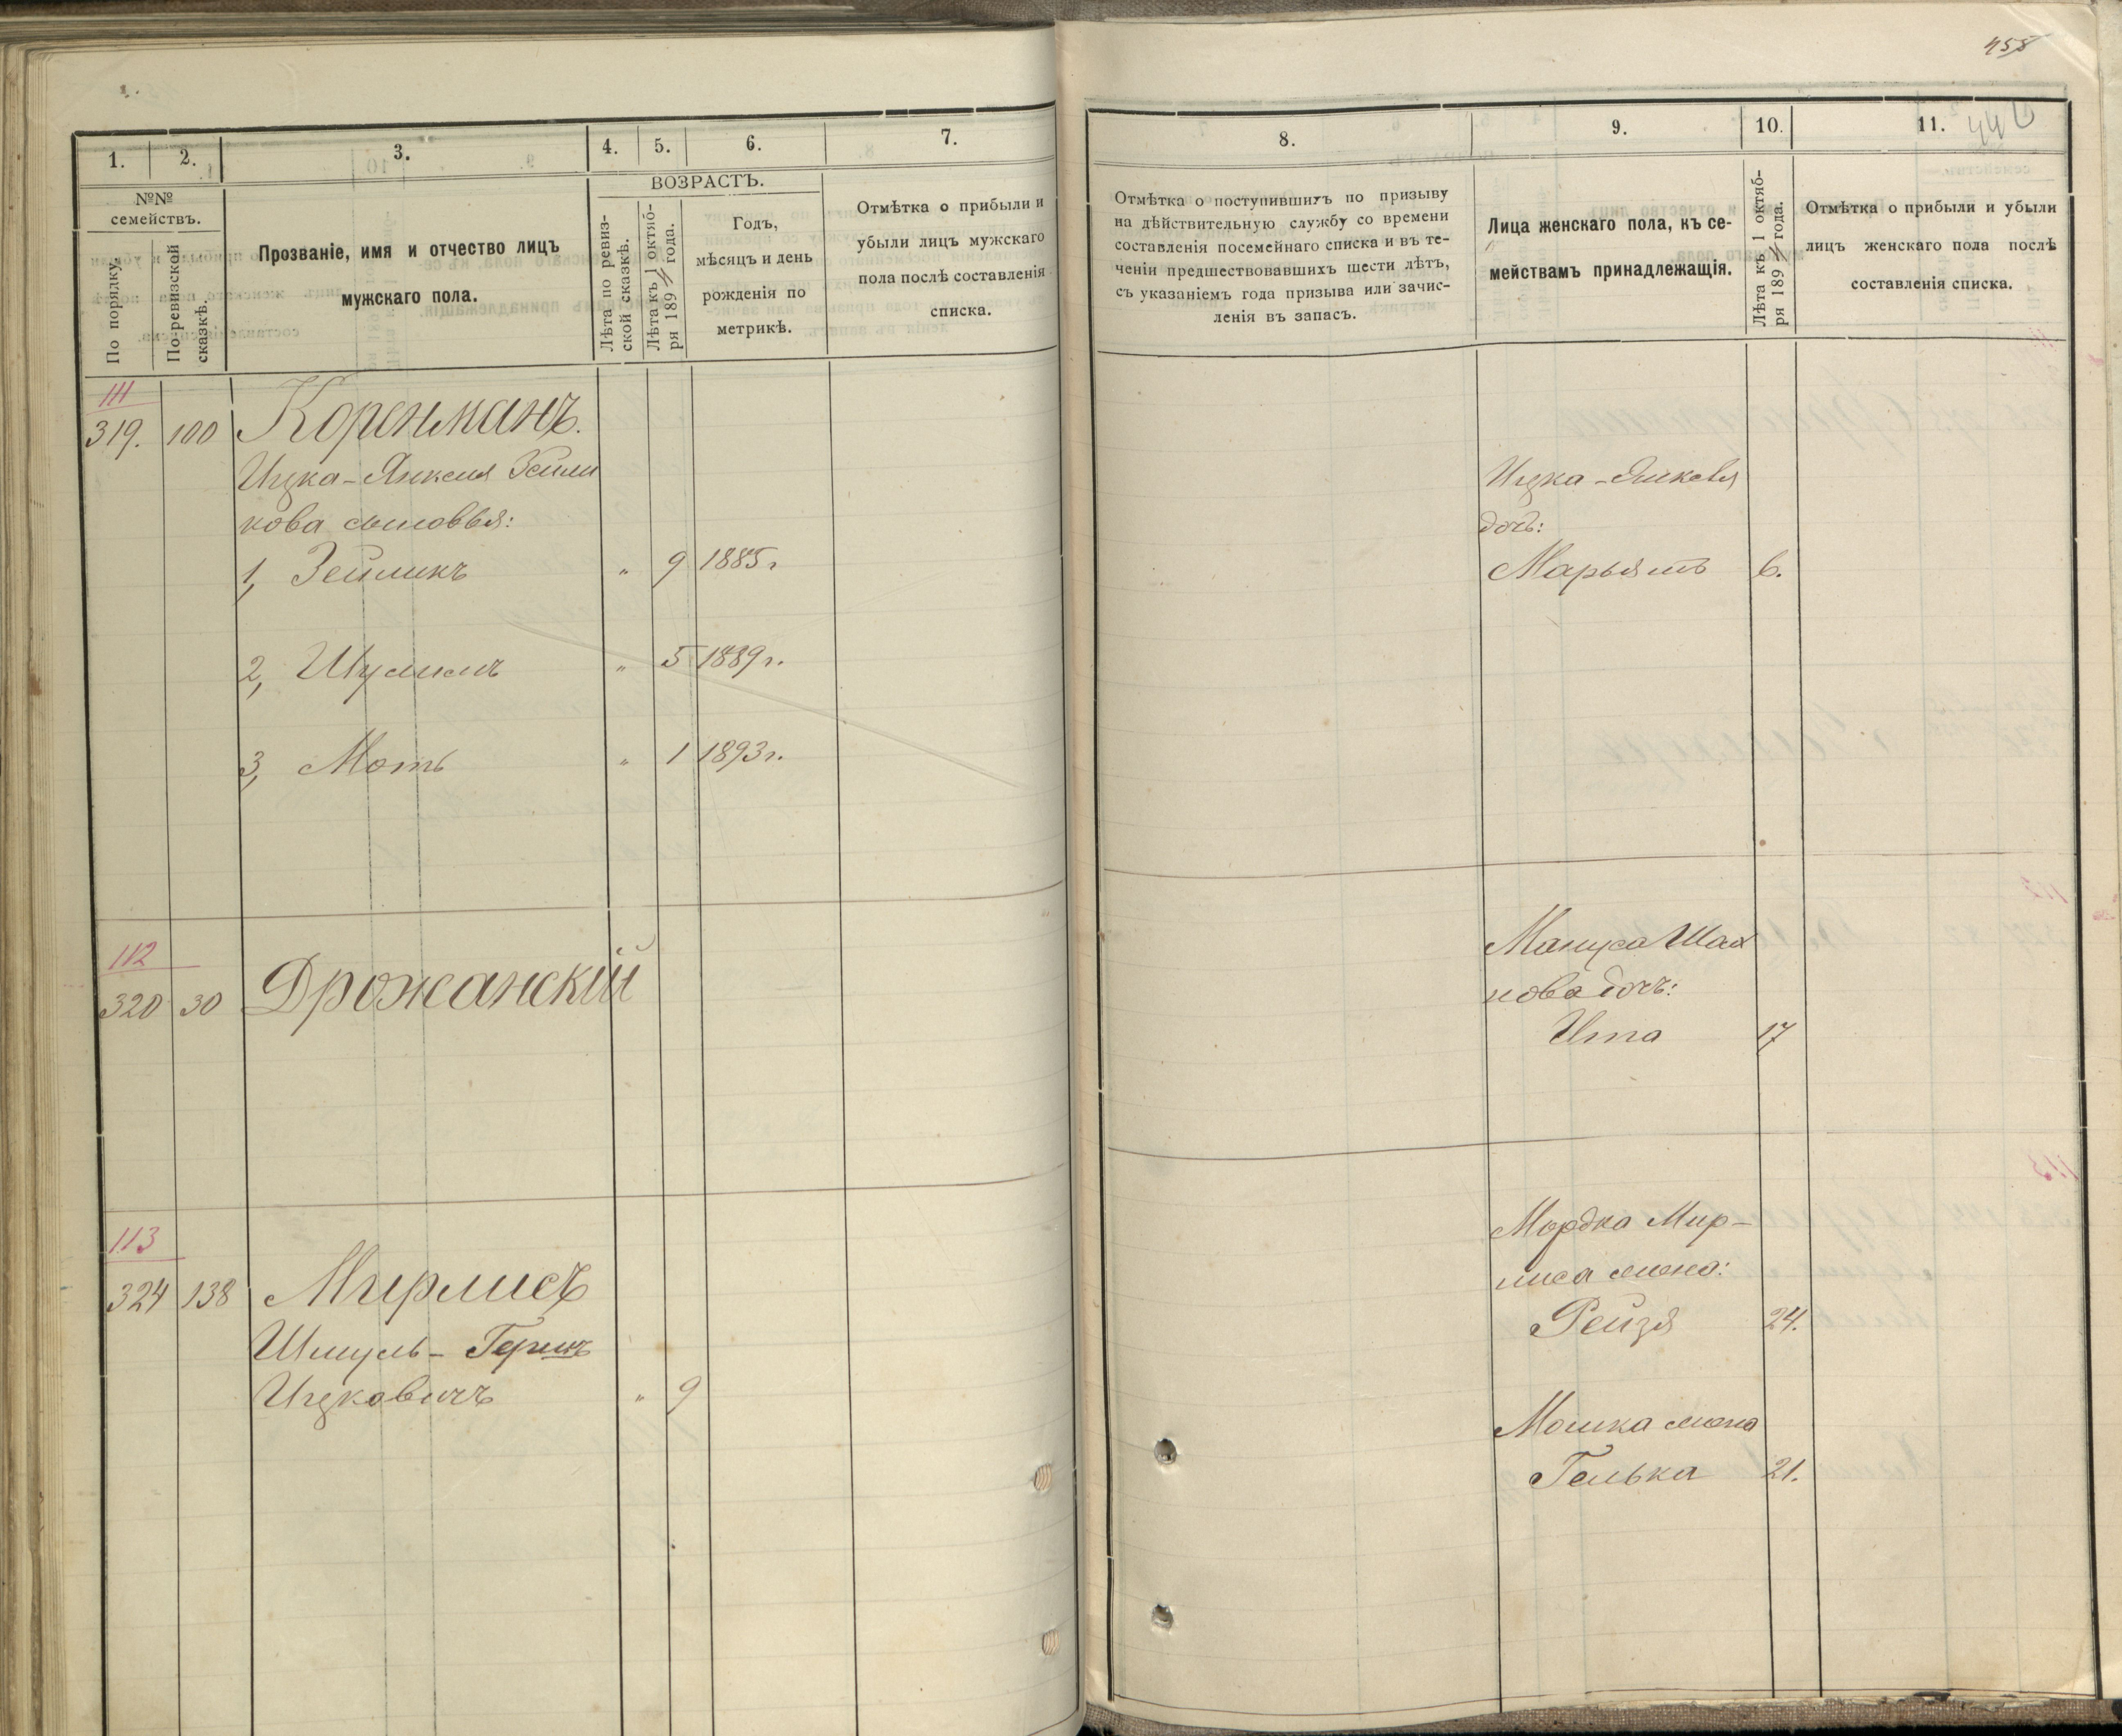 1.
2.
3.
4.
5.
6.
7.
№№
семействъ.
По порядку.
По ревизской
сказкѣ.
Прозваніе, имя и отчество лицъ
мужскаго пола.
ВОЗРАСТЪ.
Лѣта по ревиз-
ской сказкѣ.
Лѣта къ 1 октяб-
ря 189 4 года.
Годъ,
мѣсяцъ и день
рожденія по
метрикѣ.
Отмѣтка о прибыли и
убыли лицъ мужскаго
пола послѣ составленія
списка.
111
319. 100 Коренманъ.
Ицка-Янкеля Зейли
кова сыновья:
1, Зейликъ " 9 1885 г
2, Шулимъ " 5 1889 г.
3, Моть " 1 1893 г.
112
320 30 Дрожанскій
113
324 138 Мирлисъ
Шмуль-Гершъ
Ицковичъ " 9
458
8.
9.
10.
11.
Отмѣтка о поступившихъ по призыву
на дѣйствительную службу со времени
составленія посемейнаго списка и въ те-
ченіи предшествовавшихъ шести лѣтъ,
съ указаніемъ года призыва или зачис-
ленія въ запасъ.
Лица женскаго пола, къ се-
мействамъ принадлежащія.
Лѣта къ 1 октяб-
ря 189 4 года.
Отмѣтка о прибыли и убыли
лицъ женскаго пола послѣ
составленія списка.
Ицка-Янкеля
дочь:
Марьямъ 6.
Мануса Шах
нова дочь:
Ита 17
Мордка Мир-
лиса жена:
Рейзя 24.
Мошка жена
Гелька 21.